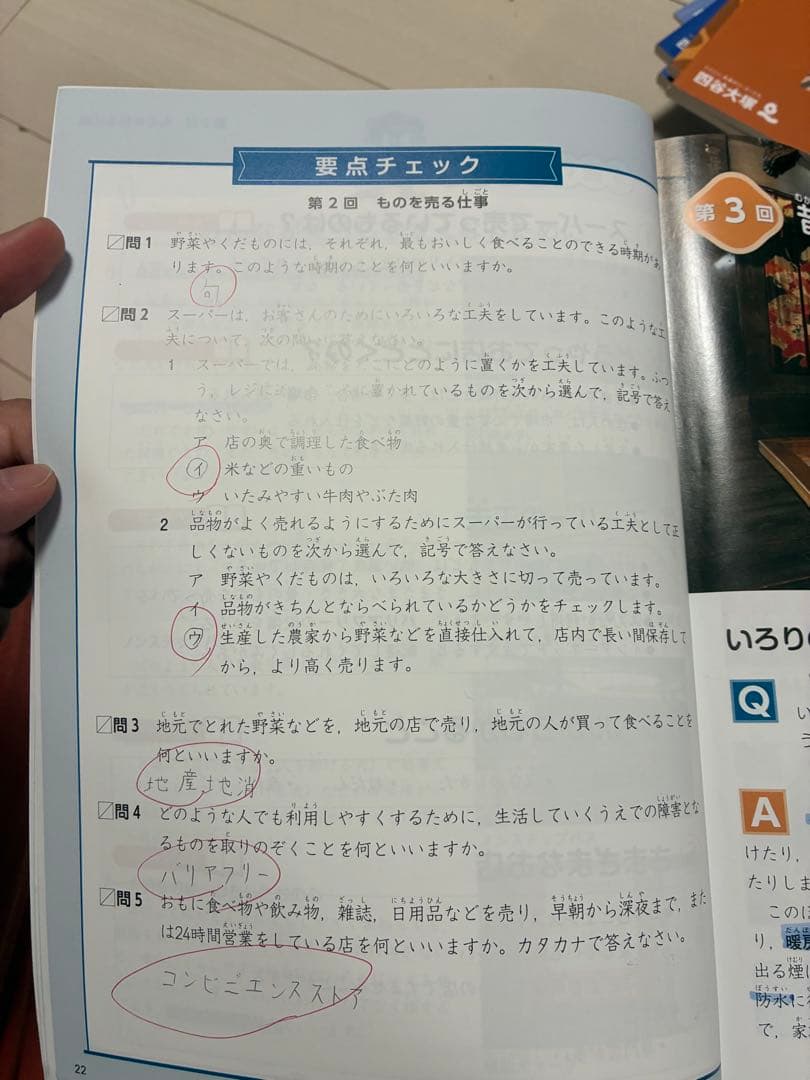 四谷大塚
要点チェック
第2回 ものを売る仕事
問1 野菜やくだものには，それぞれ，最もおいしく食べることのできる時期があ
ります。このような時期のことを何といいますか。
旬
問2 スーパーは，お客さんのためにいろいろな工夫をしています。このような工
夫について，次の問いに答えなさい。
1 スーパーでは，どのように置くかを工夫しています。ふつ
う，レジに置かれているものを次から選んで，記号で答え
なさい。
ア 店の奥で調理した食べ物
イ 米などの重いもの
ウ いたみやすい牛肉やぶた肉
2 品物がよく売れるようにするためにスーパーが行っている工夫として正
しくないものを次から選んで，記号で答えなさい。
ア 野菜やくだものは，いろいろな大きさに切って売っています。
イ 品物がきちんとならべられているかどうかをチェックします。
ウ 生産した農家から野菜などを直接仕入れて，店内で長い間保存して
から，より高く売ります。
問3 地元でとれた野菜などを，地元の店で売り，地元の人が買って食べることを
何といいますか。
地産地消
問4 どのような人でも利用しやすくするために，生活していくうえでの障害とな
るものを取りのぞくことを何といいますか。
バリアフリー
問5 おもに食べ物や飲み物，雑誌，日用品などを売り，早朝から深夜まで，また
は24時間営業をしている店を何といいますか。カタカナで答えなさい。
コンビニエンスストア
22
第3回
いろりの
Q
い
う
A
けたり，
たりしま
このほ
り，暖房
出る煙に
防水に
で，家